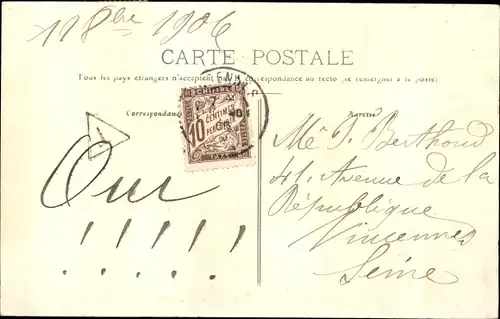 11 8bre 1906
CARTE POSTALE
Tous les pays étrangers n'acceptent pas la correspondance au recto (se renseigner à la poste)
Correspondance
Adresse
T
10
CENTIMES
A PERCEVOIR
7
10
06
Oui
!!!!!!
Me J. Berthoud
41. Avenue de la
République
Vincennes
Seine